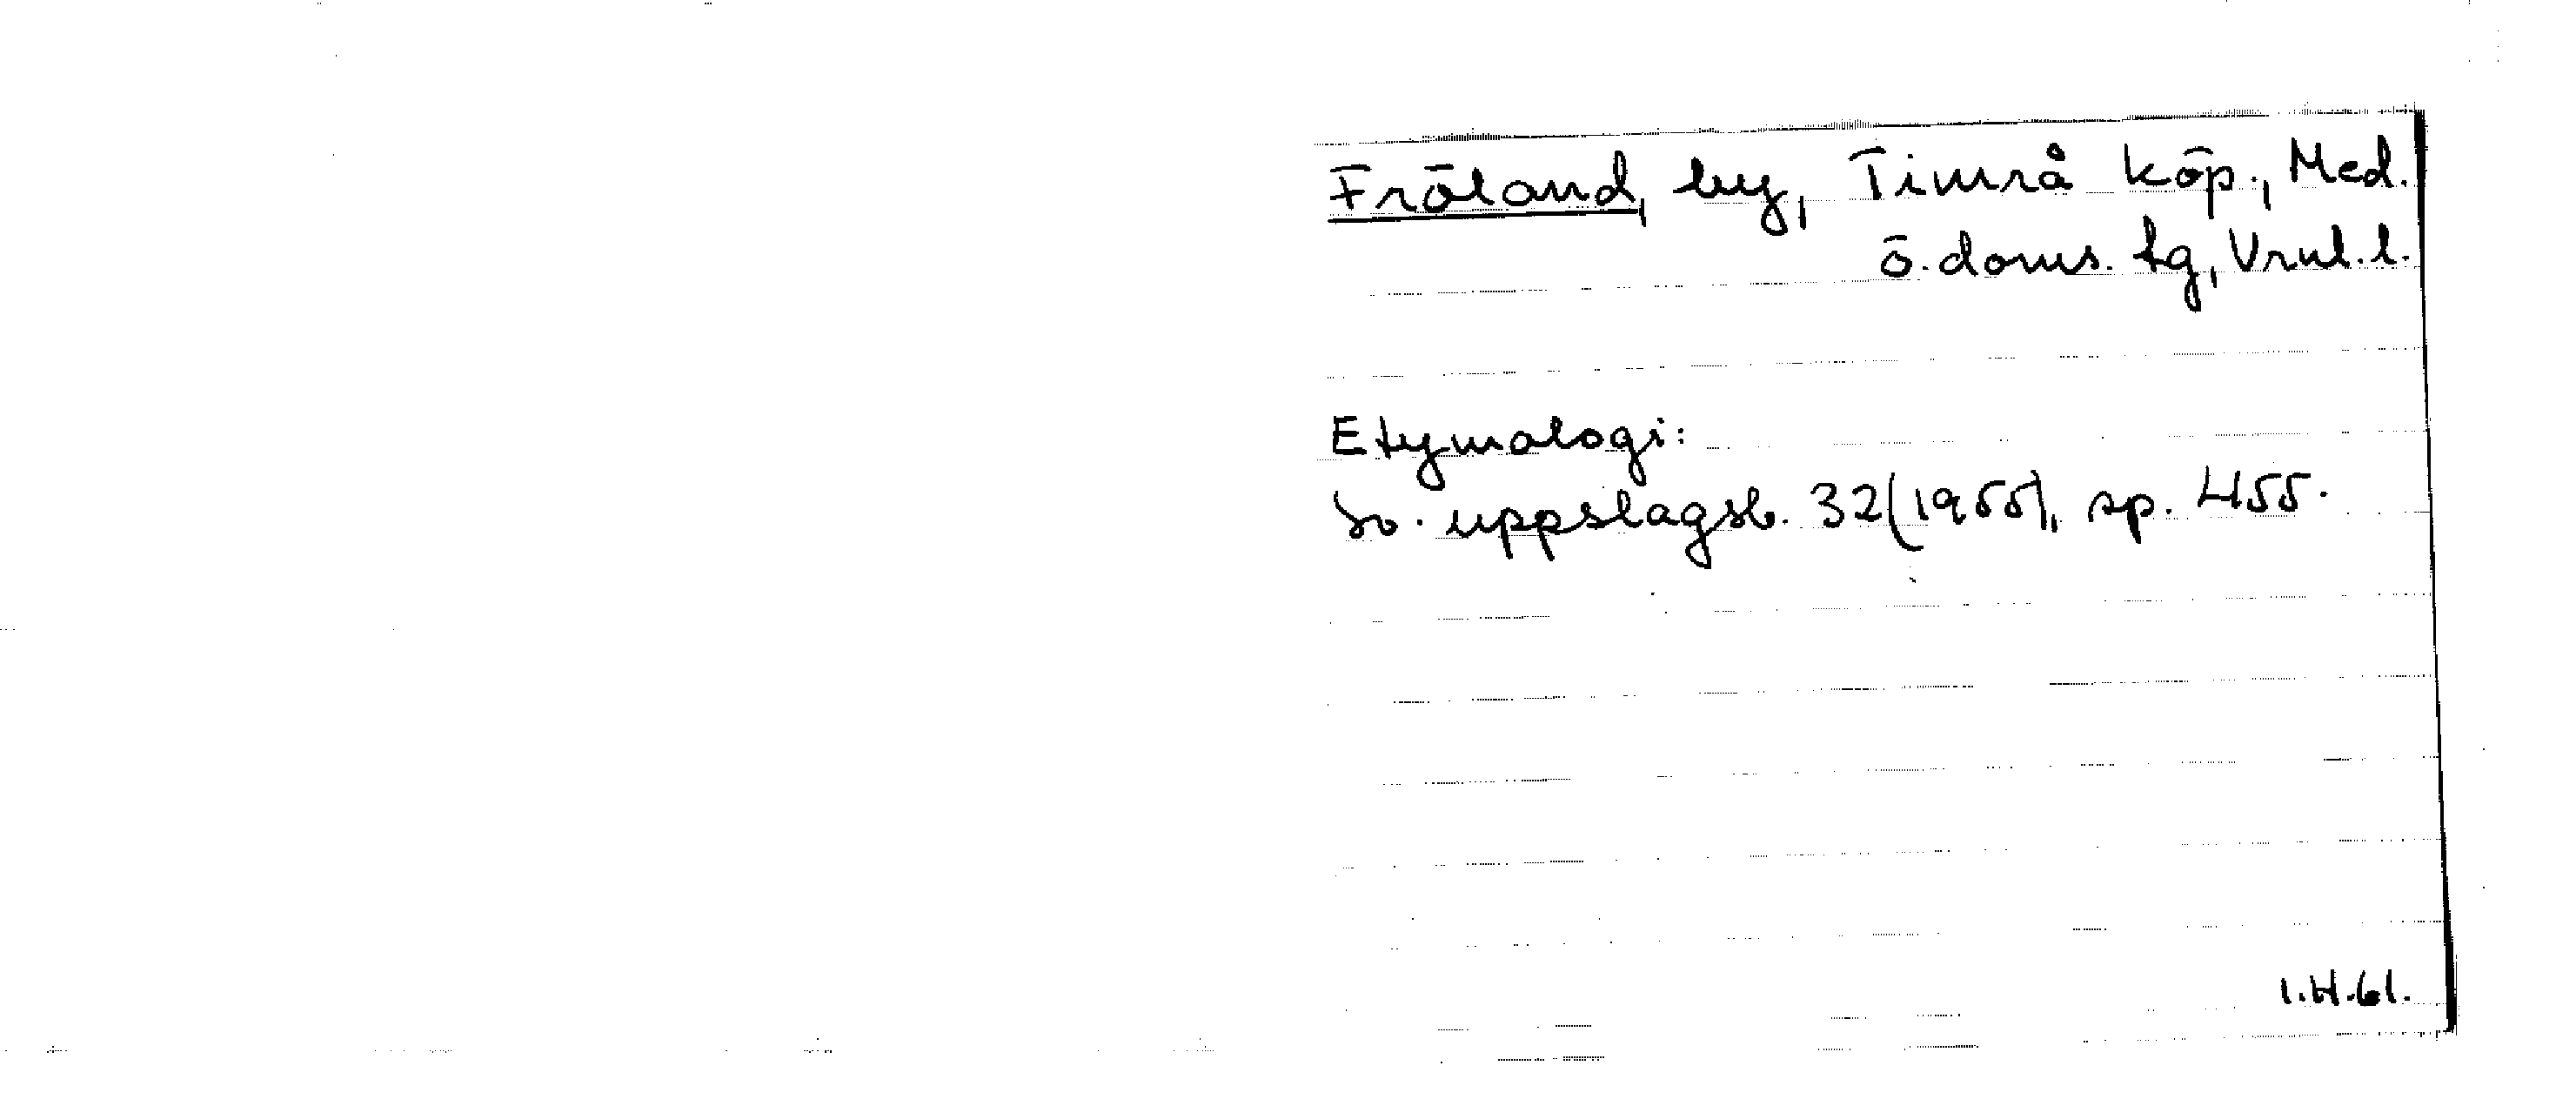 Fröland, by, Timrå köp., Med.
ö. doms. tg, Vrnl. l.
Etymologi:
Sv. uppslagsb. 32(1955), sp. 455.
I.H.61.